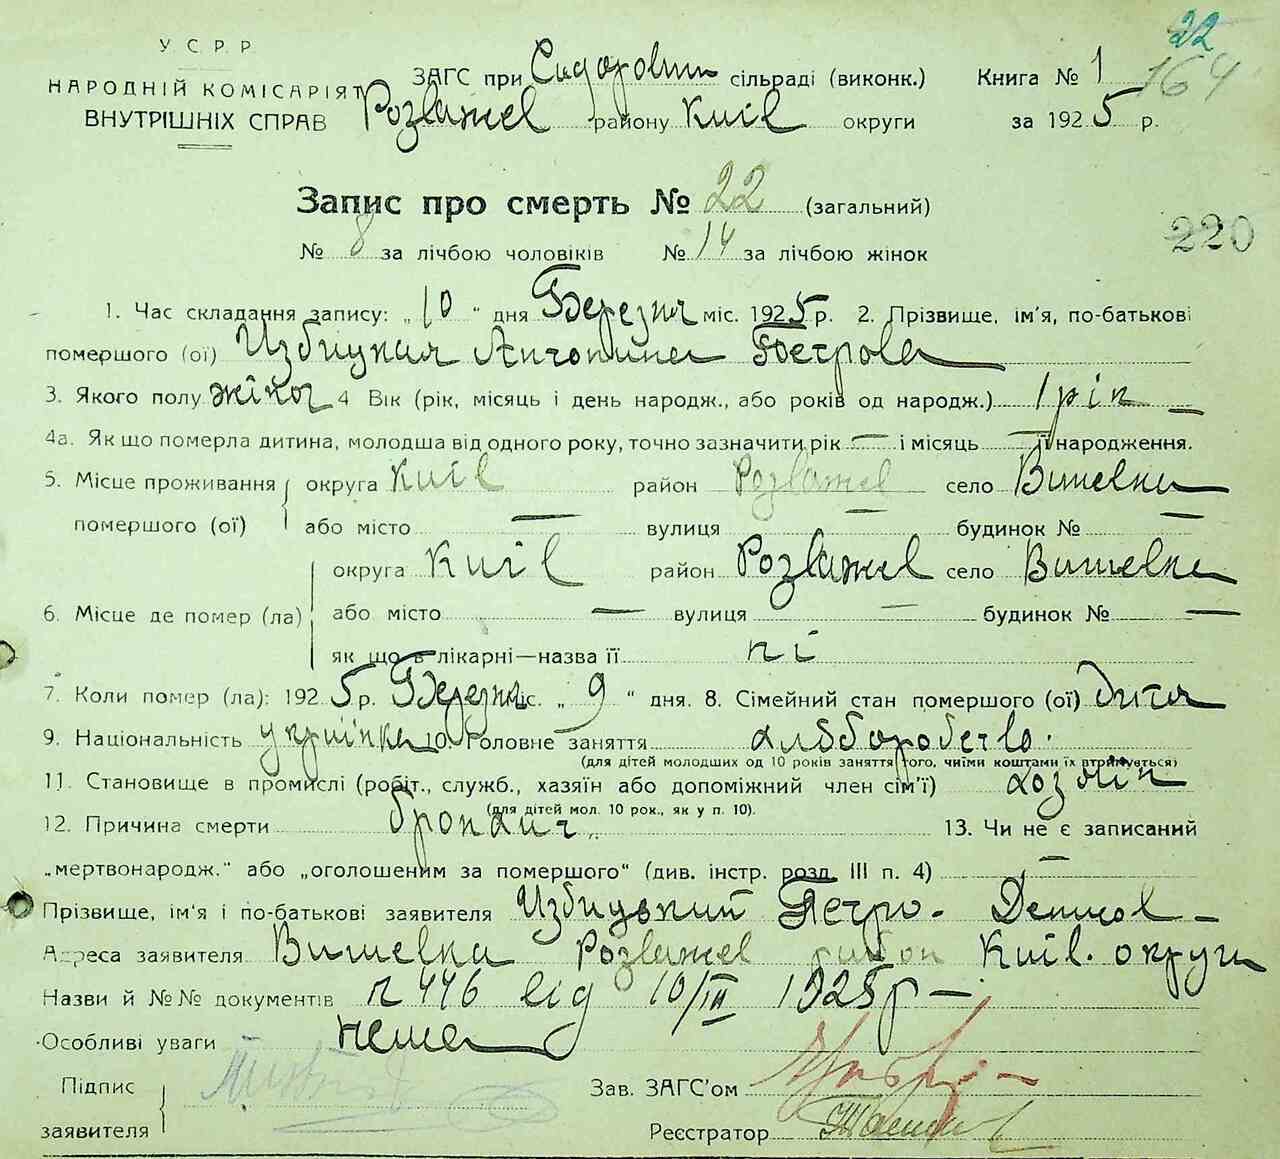 22
У С Р Р
НАРОДНІЙ КОМІСАРІЯТ
ВНУТРІШНІХ СПРАВ
ЗАГС при Сидорович сільраді (виконк.)
Розважев району Київ округи
Книга № 1 164
за 1925 р.
Запис про смерть № 22 (загальний)
№ 8 за лічбою чоловіків № 14 за лічбою жінок
220
1. Час складання запису: „10“ дня Березня міс. 1925 р. 2. Прізвище, ім'я, по-батькові
помершого (ої) Избицкая Антонина Петрова
3. Якого полу жіноч 4 Вік (рік, місяць і день народж., або років од народж.) 1 рік —
4а. Якщо померла дитина, молодша від одного року, точно зазначити рік — і місяць — її народження.
5. Місце проживання округа Київ район Розважев село Вишевка
помершого (ої) або місто — вулиця — будинок № —
округа Київ район Розважев село Вишевка
6. Місце де помер (ла) або місто — вулиця — будинок № —
як що в лікарні—назва її ні
7. Коли помер (ла): 1925 р. Березня міс. „9“ дня. 8. Сімейний стан помершого (ої) Дитя
9. Національність українка 10. Головне заняття хлібборобство.
(для дітей молодших од 10 років заняття того, чиїми коштами їх втримується)
11. Становище в промислі (робіт., служб., хазяїн або допоміжний член сім'ї) хозяїн
(для дітей мол. 10 рок., як у п. 10).
12. Причина смерти бронхит 13. Чи не є записаний
„мертвонародж.“ або „оголошеним за помершого“ (див. інстр. розд. III п. 4) —
Прізвище, ім'я і по-батькові заявителя Избицький Петро Денисов —
Адреса заявителя Вишевка Розважев район Київ. округи
Назви й №№ документів 446 від 10/III 1925 р —
Особливі уваги нема
Підпис
заявителя
Зав. ЗАГС'ом
Реєстратор